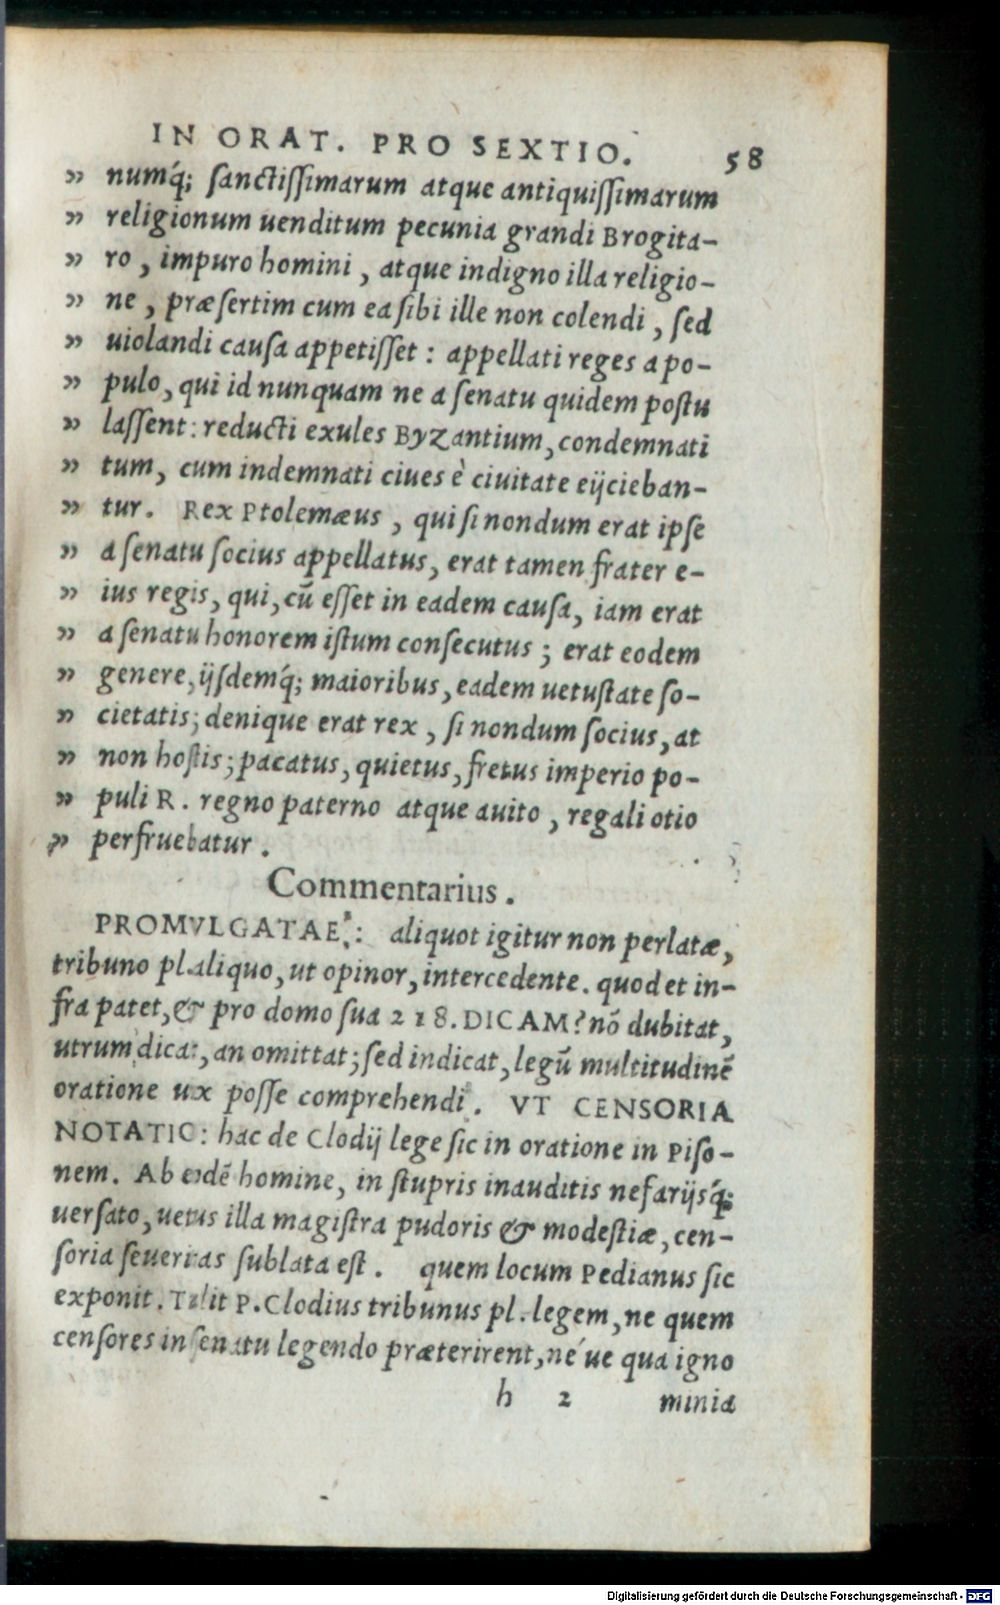 IN ORAT. PRO SEXTIO. 58
” numq́; sanctissimarum atque antiquissimarum
” religionum uenditum pecunia grandi Brogita-
” ro, impuro homini, atque indigno illa religio-
” ne, præsertim cum ea sibi ille non colendi, sed
” uiolandi causa appetisset: appellati reges a po-
” pulo, qui id nunquam ne a senatu quidem postu
” lassent: reducti exules Byzantium, condemnati
” tum, cum indemnati ciues è ciuitate eijcieban-
” tur. Rex Ptolemæus, qui si nondum erat ipse
” a senatu socius appellatus, erat tamen frater e-
” ius regis, qui, cū esset in eadem causa, iam erat
” a senatu honorem istum consecutus; erat eodem
” genere, ijsdemq́; maioribus, eadem uetustate so-
” cietatis; denique erat rex, si nondum socius, at
” non hostis; pacatus, quietus, fretus imperio po-
” puli R. regno paterno atque auito, regali otio
” perfruebatur.
Commentarius.
PROMVLGATAE: aliquot igitur non perlatæ,
tribuno pl. aliquo, ut opinor, intercedente. quod et in-
fra patet, & pro domo sua 218. DICAM? nō dubitat,
utrum dicat, an omittat; sed indicat, legū multitudinē
oratione uix posse comprehendi. VT CENSORIA
NOTATIO: hac de Clodij lege sic in oratione in Piso-
nem. Ab eodē homine, in stupris inauditis nefarijsq́;
uersato, uetus illa magistra pudoris & modestiæ, cen-
soria seueritas sublata est. quem locum Pedianus sic
exponit. Tulit P. Clodius tribunus pl. legem, ne quem
censores in senatu legendo præterirent, né ue qua igno
h 2 minia
Digitalisierung gefördert durch die Deutsche Forschungsgemeinschaft - DFG